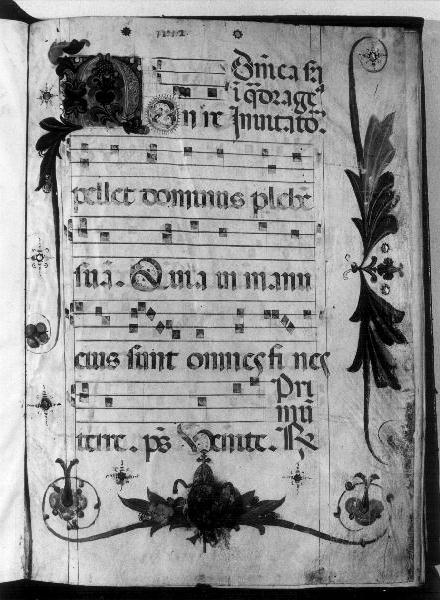 Dn̄ica
i q̄drageˢ
Non re Inuitatō.
pellet dominus plebē
suā. Quia in manu
eius sunt omnes fi nes
Pri
mū
terre. ps̄ Venite. R